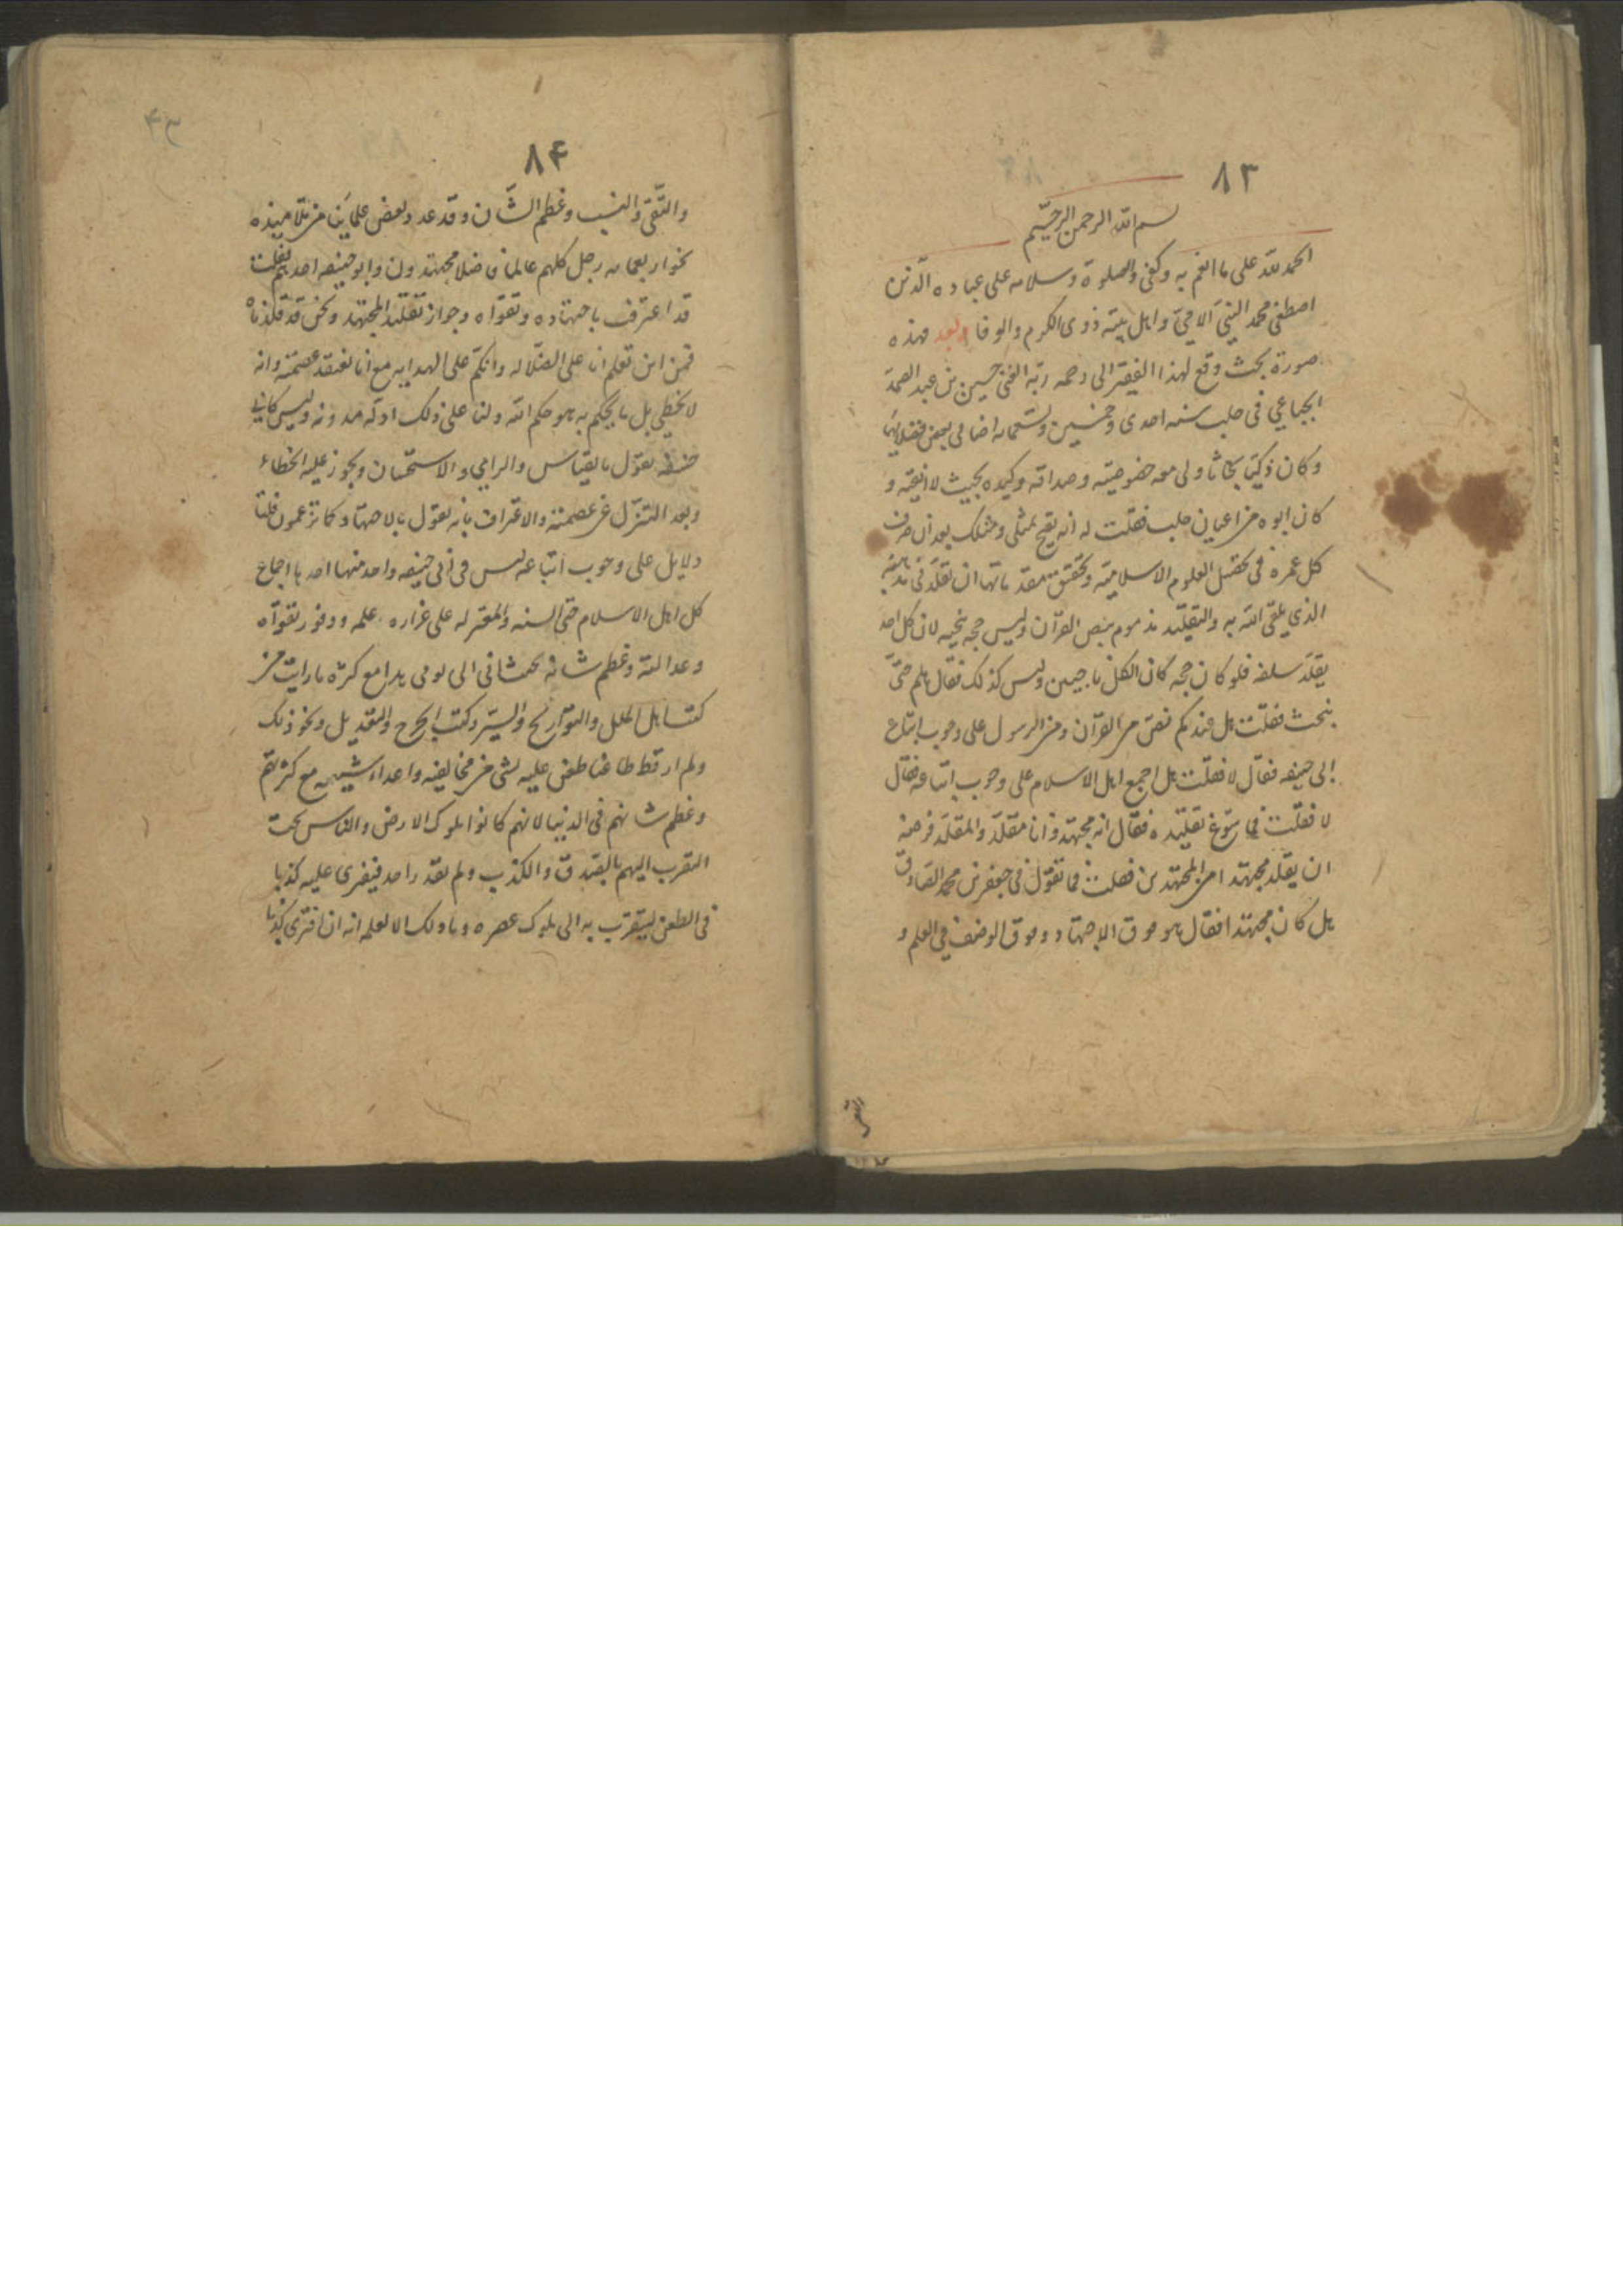 ٨٣
بسم الله الرحمن الرحيم
الحمد لله على ما انعم به وكفى والصلوة وسلامه على عباده الذين
اصطفى محمد النبي الامي واهل بيته ذوى الكرم والوفا وبعد فهذه
صورة بحث وقع لهذا الفقير الى رحمه ربه الغنى حسين بن عبد الصمد
الجباعي فى حلب سنه احدى وخمسين وتسعمائه اضافى بعض فضلائها
وكان ذكيا بحاثا ولى معه خصوصيته وصداقه وكيده بحيث لا اتقيه و
كان ابوه من اعيان حلب فقلت له انه يقبح بمثلى ومثلك بعد ان صرف
كل عمره فى تحصيل العلوم الاسلاميه وتحقيق مقدماتها ان تقلد فى مذهبه
الذي يلقى الله به والتقليد مذموم بنص القرآن وليس حجه منجيه لان كل احد
يقلد سلفه فلو كان حجه كان الكل ناجيين وليس كذلك فقال هلم حتى
نبحث فقلت هل عندكم نص من القرآن ومن الرسول على وجوب اتباع
ابى حنيفه فقال لا فقلت هل اجمع اهل الاسلام على وجوب اتباعه فقال
لا فقلت فما سوغ تقليده فقال انه مجتهد وانا مقلد والمقلد فرضه
ان يقلد مجتهدا من المجتهدين فقلت فما تقول فى جعفر بن محمد الصادق
هل كان مجتهدا فقال هو فوق الاجتهاد وفوق الوصف في العلم و
والتقى
٨۴
۴٣
والتقى والنسب وعظم الشان وقد عدد بعض علمائنا من تلاميذه
نحو اربعمايه رجل كلهم عالما فاضلا مجتهدون وابو حنيفه احدهم فقلت
قد اعترف باجتهاده وتقواه وجواز تقليد المجتهد ونحن قد قلدناه
فمن اين تعلم انا على الضلاله وانكم على الهدايه مع انا نعتقد عصمته وانه
لا يخطي بل ما يحكم به هو حكم الله ولنا على ذلك ادله مدونه وليس كابي
حنيفه يقول بالقياس والراي والاستحسان ويجوز عليه الخطاء
وبعد التنزل عن عصمته والاعتراف بانه يقول بالاجتهاد كما تزعمون فلنا
دلايل على وجوب اتباعه ليس فى ابى حنيفه واحد منها احدها اجماع
كل اهل الاسلام حتى السنه والمعتزله على غزاره علمه ووفور تقواه
وعدالته وعظم شانه بحيث انى الى يومى هذا مع كثره ما رايت من
كتب اهل الملل والتواريخ والسير وكتب الجرح والتعديل ونحو ذلك
ولم ار قط طاعنا طعن عليه بشى من مخالفيه واعداء شيعته مع كثرتهم
وعظم شانهم فى الدنيا لانهم كانوا ملوك الارض والناس تحت
التقرب اليهم بالصدق والكذب ولم يقدر احد فيفرى عليه كذبا
فى الطعن ليتقرب به الى ملوك عصره وما ذلك الا لعلمه انه ان افترى كذبا